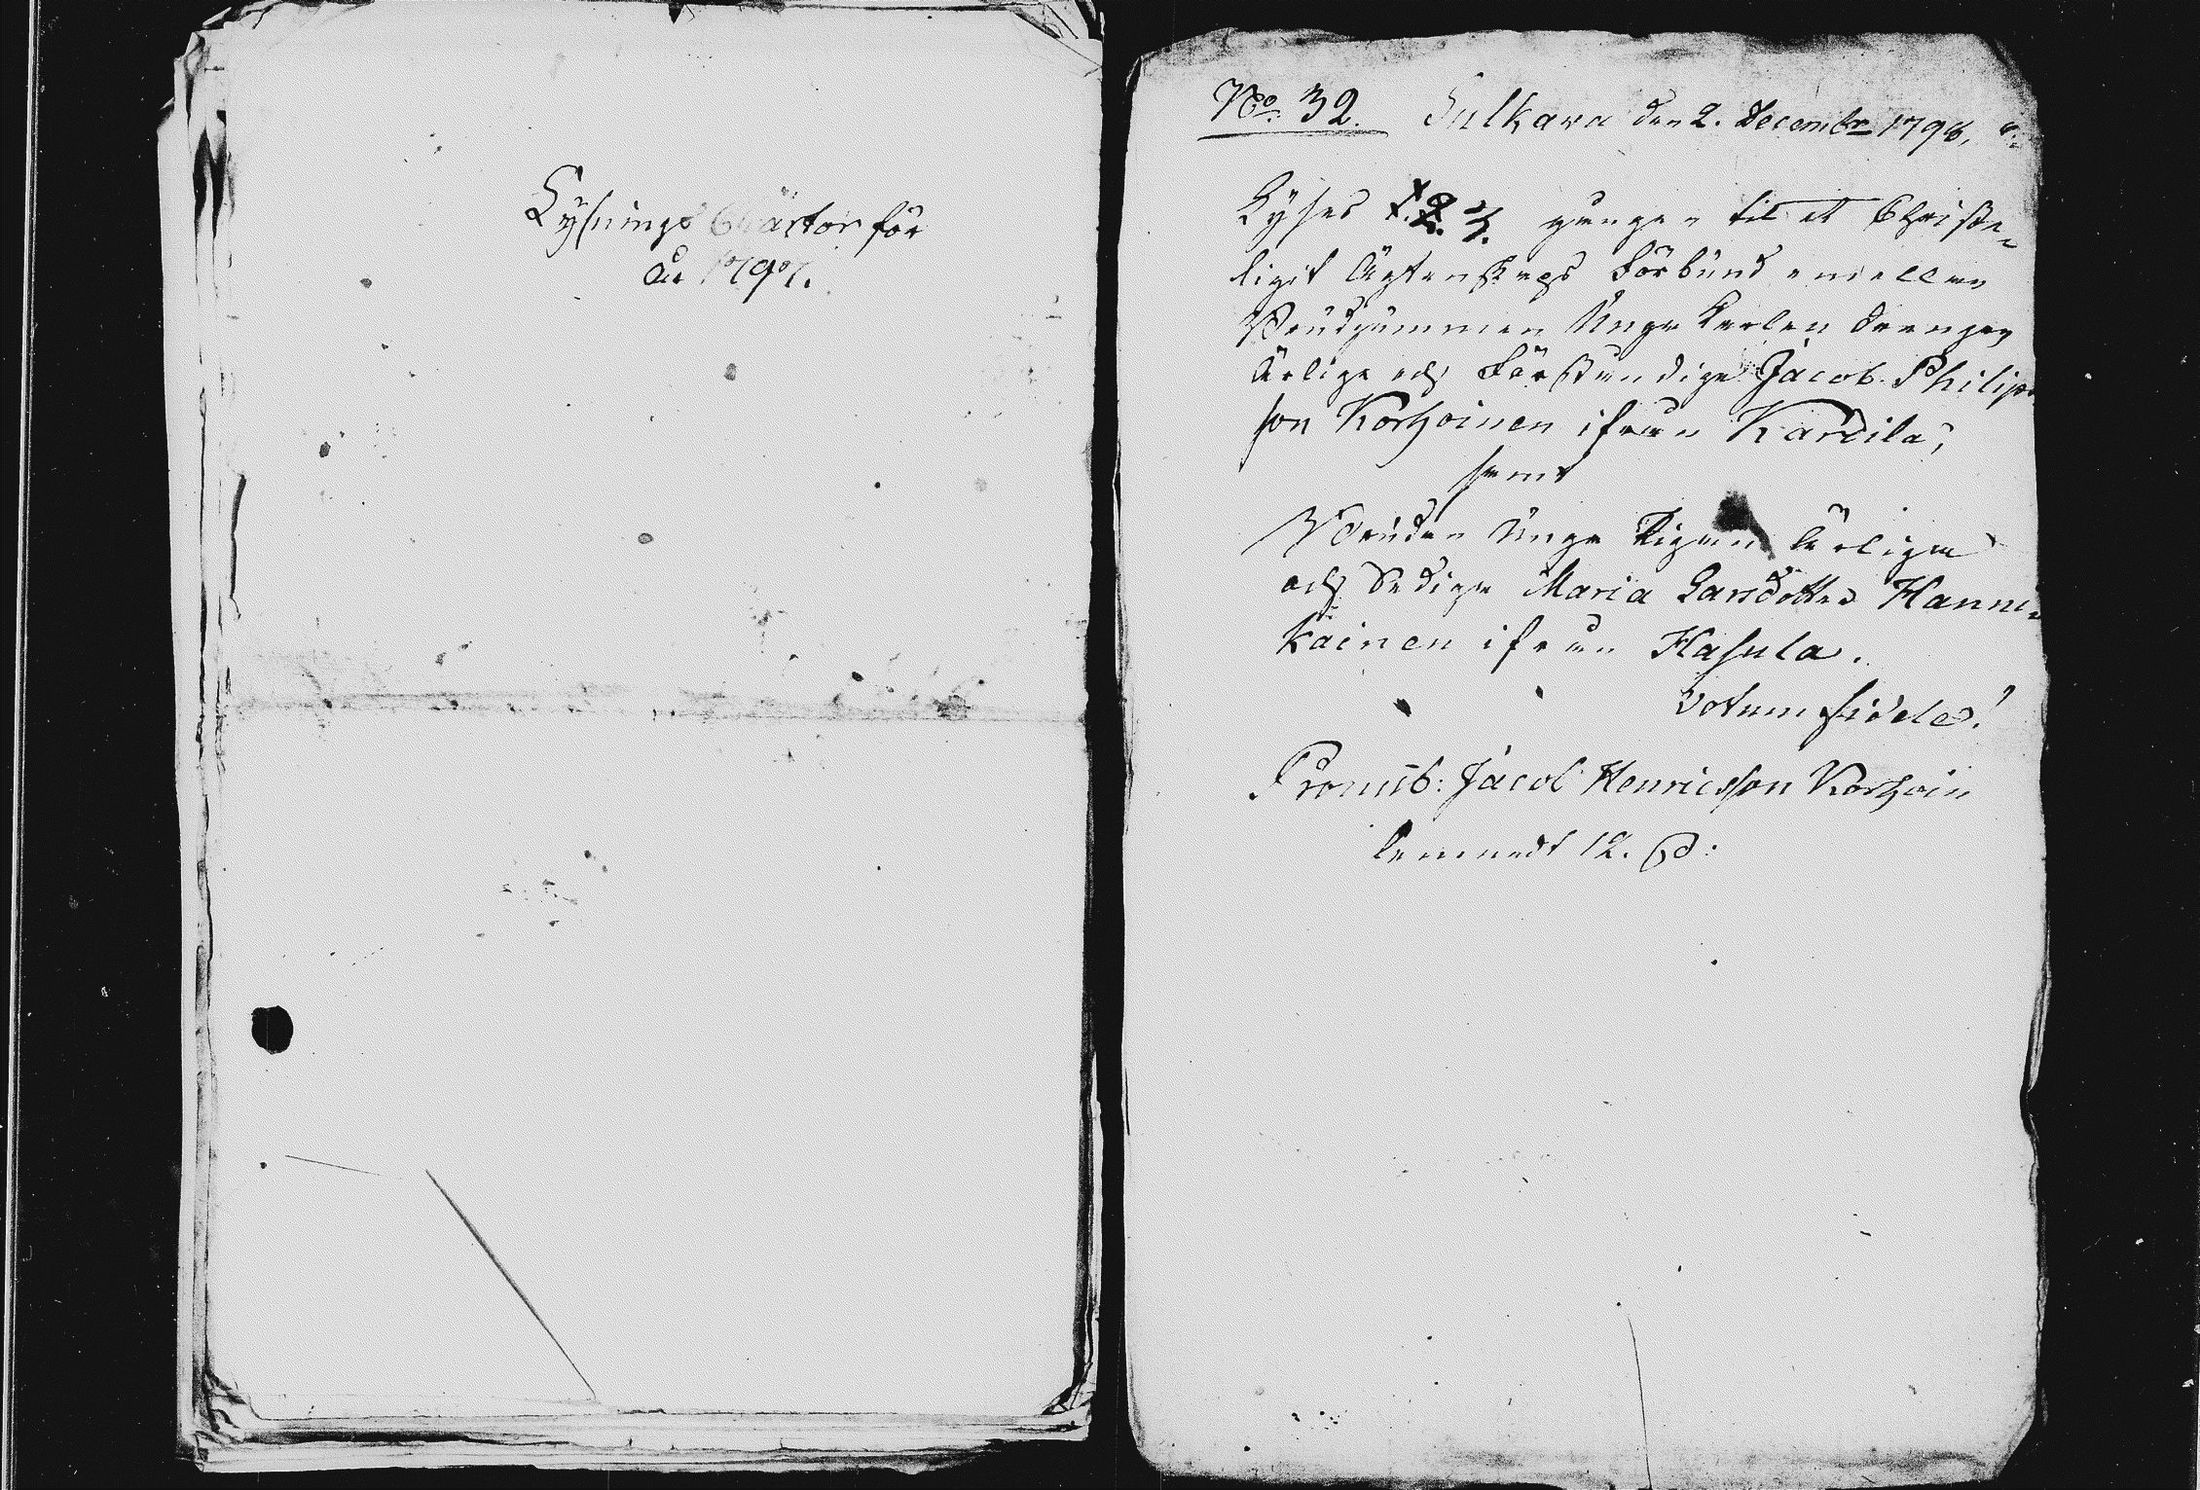 Lysnings Cartor för
år 1797.
No. 32. Sulkava den 2. Decembr 1796.
Lyses 1. 2. 3. gången til et Christe-
ligit Ägtenskaps Förbund emellan
Brudgummen Unge Karlen Drengen
Ärlige och Förståndige Jacob Philip-
son Korhoinen ifrån Kardila,
samt
Bruden Unge Pigan Ärliga
och Sediga Maria Larsdotter Hanni-
käinen ifrån Hasula.
Votum fidele!
Pronub: Jacob Henricsson Korhoin
lemnadt 12.